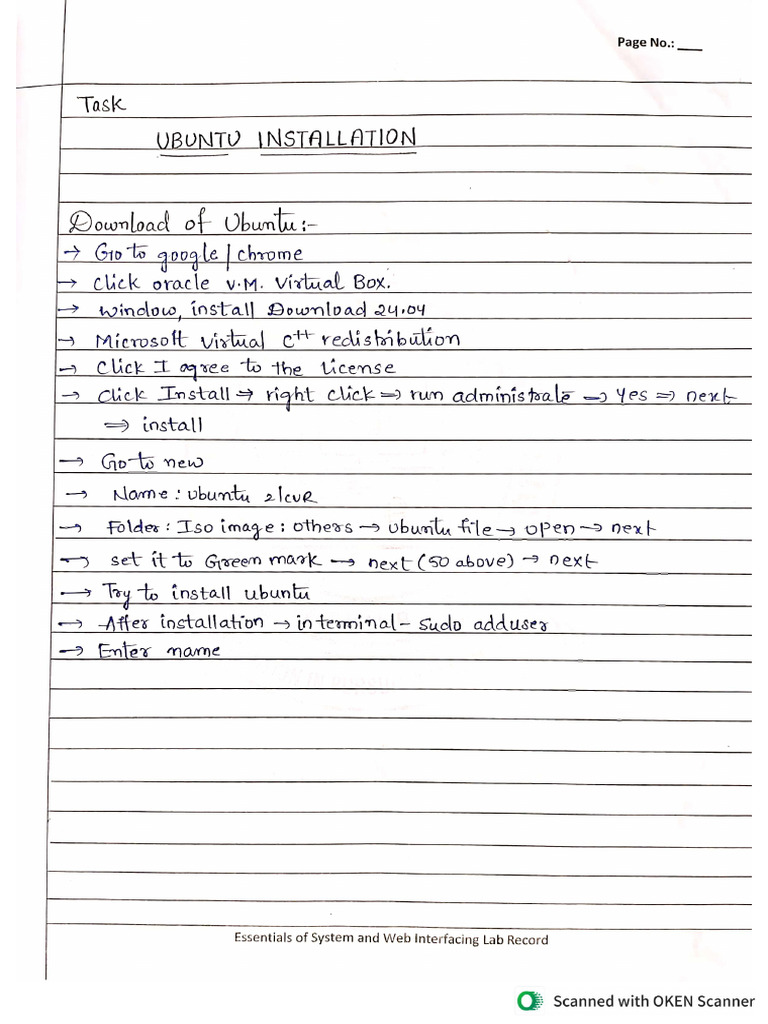 Page No.: ___
Task
UBUNTU INSTALLATION
Download of Ubuntu:-
→ Go to google / chrome
→ click oracle V.M. Virtual Box.
→ window, install Download 24.04
→ Microsoft virtual C++ redistribution
→ Click I agree to the license
→ Click Install → right click ⇒ run administrate → Yes ⇒ next
⇒ install
→ Go to new
→ Name : Ubuntu 21CVR
→ Folder : Iso image : others → ubuntu file → open → next
→ set it to Green mark → next (50 above) → next
→ Try to install ubuntu
→ After installation → in terminal - sudo adduser
→ Enter name
Essentials of System and Web Interfacing Lab Record
Scanned with OKEN Scanner